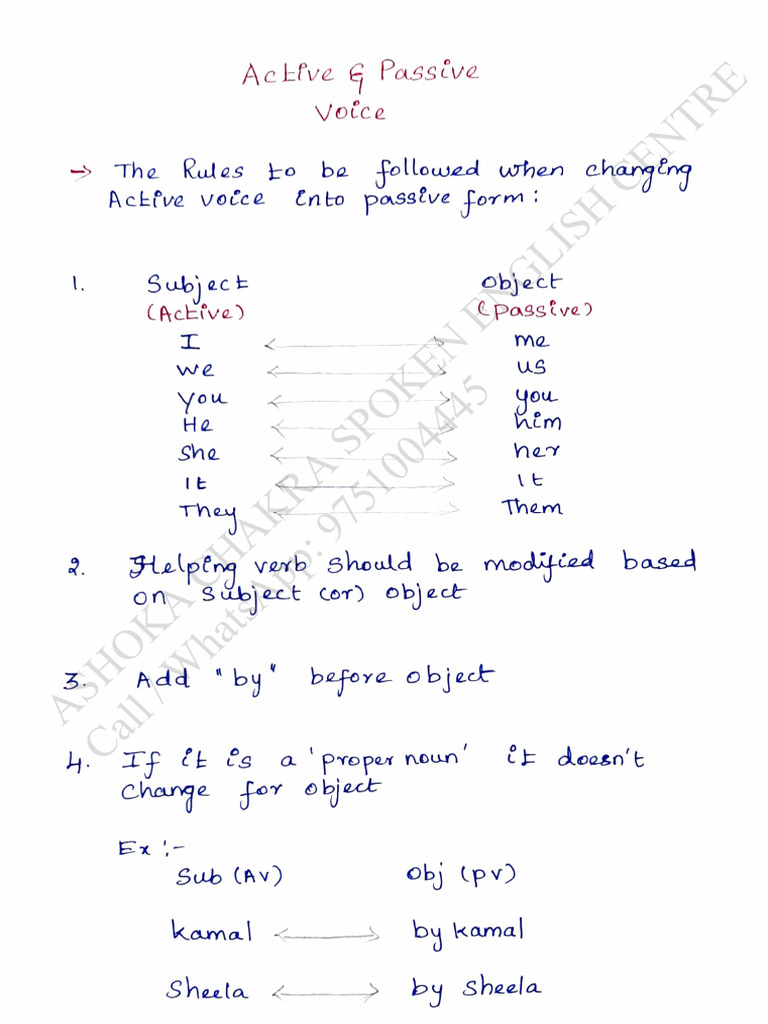 Active & Passive
Voice
→ The Rules to be followed when changing
Active voice into passive form:
1. Subject Object
(Active) (Passive)
I ⟷ me
we ⟷ us
you ⟷ you
He ⟷ him
She ⟷ her
It ⟷ It
They ⟷ Them
2. Helping verb should be modified based
on subject (or) object
3. Add "by" before object
4. If it is a 'proper noun' it doesn't
change for object
Ex :-
Sub (AV) Obj (PV)
Kamal ⟷ by Kamal
Sheela ⟷ by Sheela
ASHOKA CHAKRA SPOKEN ENGLISH CENTRE
Call / WhatsApp: 9751004445